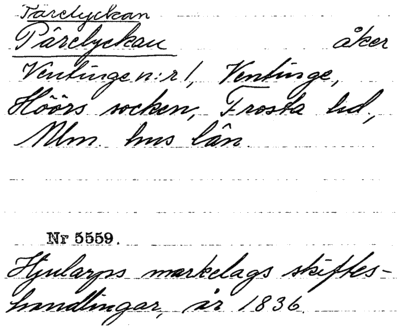 Pärelyckan
Pärelyckan åker
Ventinge n:r 1, Ventinge,
Höörs socken, Frosta hd,
Mlm. hus län.
Nr 5559.
Hjularps markelags skiftes-
handlingar, år 1836.